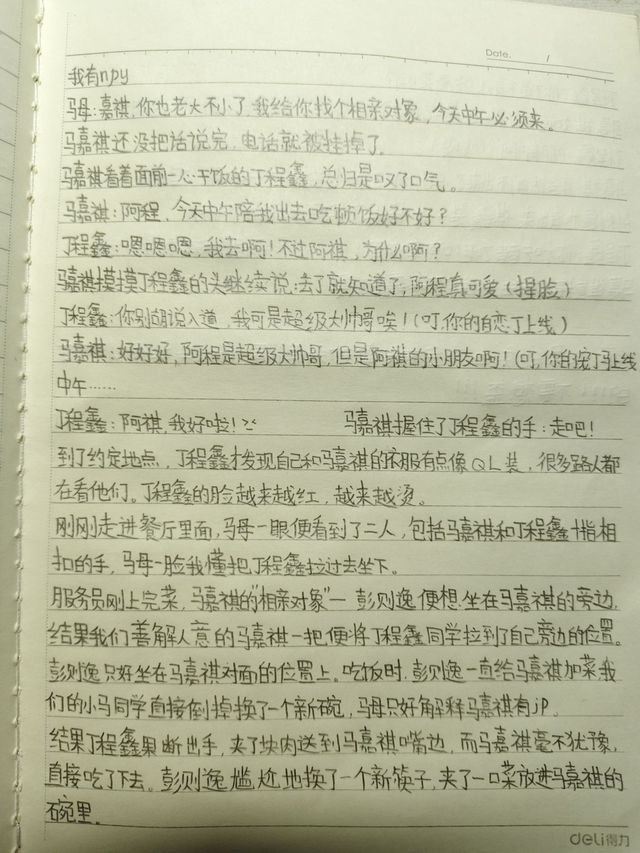 Date. /
我有npy
马母:嘉祺,你也老大不小了,我给你找个相亲对象,今天中午必须来。
马嘉祺还没把话说完,电话就被挂掉了。
马嘉祺看着面前一心干饭的丁程鑫,总归是叹了口气。
马嘉祺:阿程,今天中午陪我出去吃顿饭好不好?
丁程鑫:嗯嗯嗯,我去啊!不过阿祺,为什么啊?
马嘉祺摸摸丁程鑫的头继续说:去了就知道了,阿程真可爱(捏脸)
丁程鑫:你别胡说八道,我可是超级大帅哥唉!(叮,你的自恋丁上线)
马嘉祺:好好好,阿程是超级大帅哥,但是阿祺的小朋友啊!(叮,你的宠丁马上线
中午……
丁程鑫:阿祺,我好啦! 马嘉祺握住了丁程鑫的手:走吧!
到了约定地点,丁程鑫才发现自己和马嘉祺的衣服有点像QL装,很多路人都
在看他们。丁程鑫的脸越来越红,越来越烫。
刚刚走进餐厅里面,马母一眼便看到了二人,包括马嘉祺和丁程鑫十指相
扣的手,马母一脸我懂把丁程鑫拉过去坐下。
服务员刚上完菜,马嘉祺的"相亲对象"一彭则逸便想坐在马嘉祺的旁边,
结果我们善解人意的马嘉祺一把便将丁程鑫同学拉到了自己旁边的位置。
彭则逸只好坐在马嘉祺对面的位置上。吃饭时,彭则逸一直给马嘉祺加菜,我
们的小马同学直接倒掉换了一个新碗,马母只好解释马嘉祺有JP。
结果丁程鑫果断出手,夹了块肉送到马嘉祺嘴边,而马嘉祺毫不犹豫,
直接吃了下去。彭则逸尴尬地换了一个新筷子,夹了一口菜放进马嘉祺的
碗里。
deli得力